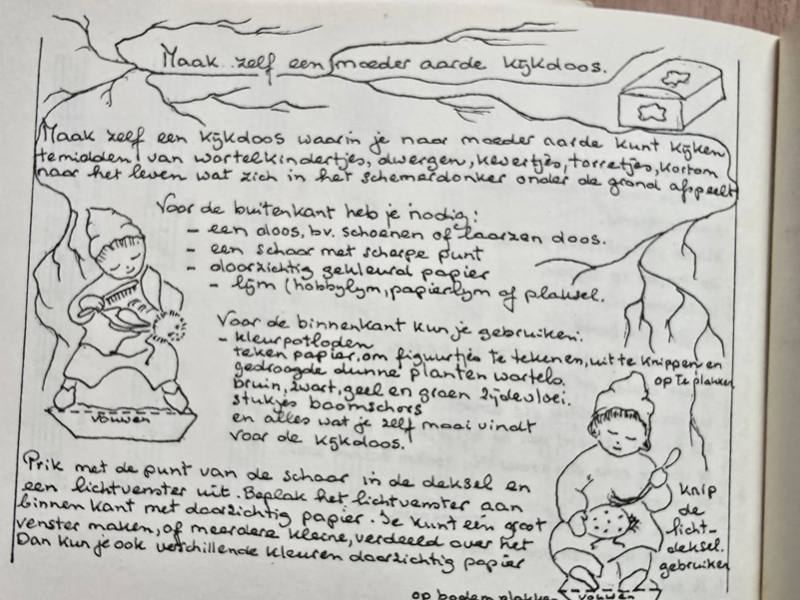 Maak zelf een moeder aarde kijkdoos.
Maak zelf een kijkdoos waarin je naar moeder aarde kunt kijken
temidden van wortelkindertjes, dwergen, kevertjes, torretjes, kortom
naar het leven wat zich in het schemerdonker onder de grond afspeelt
Voor de buitenkant heb je nodig:
- een doos, bv. schoenen of laarzen doos.
- een schaar met scherpe punt
- doorzichtig gekleurd papier
- lijm (hobbylijm, papierlijm of plaksel.
Voor de binnenkant kun je gebruiken:
- kleurpotloden
teken papier, om figuurtjes te tekenen, uit te knippen en
op te plakken
gedroogde dunne planten wortels.
bruin, zwart, geel en groen zijdevloei.
stukjes boomschors
en alles wat je zelf mooi vindt
voor de kijkdoos.
vouwen
Prik met de punt van de schaar in de deksel en
een lichtvenster uit. Beplak het lichtvenster aan
binnen kant met doorzichtig papier. Je kunt een groot
venster maken, of meerdere kleine, verdeeld over het
Dan kun je ook verschillende kleuren doorzichtig papier
knip
de
licht-
deksel.
gebruiken
op bodem plakken
vouwen